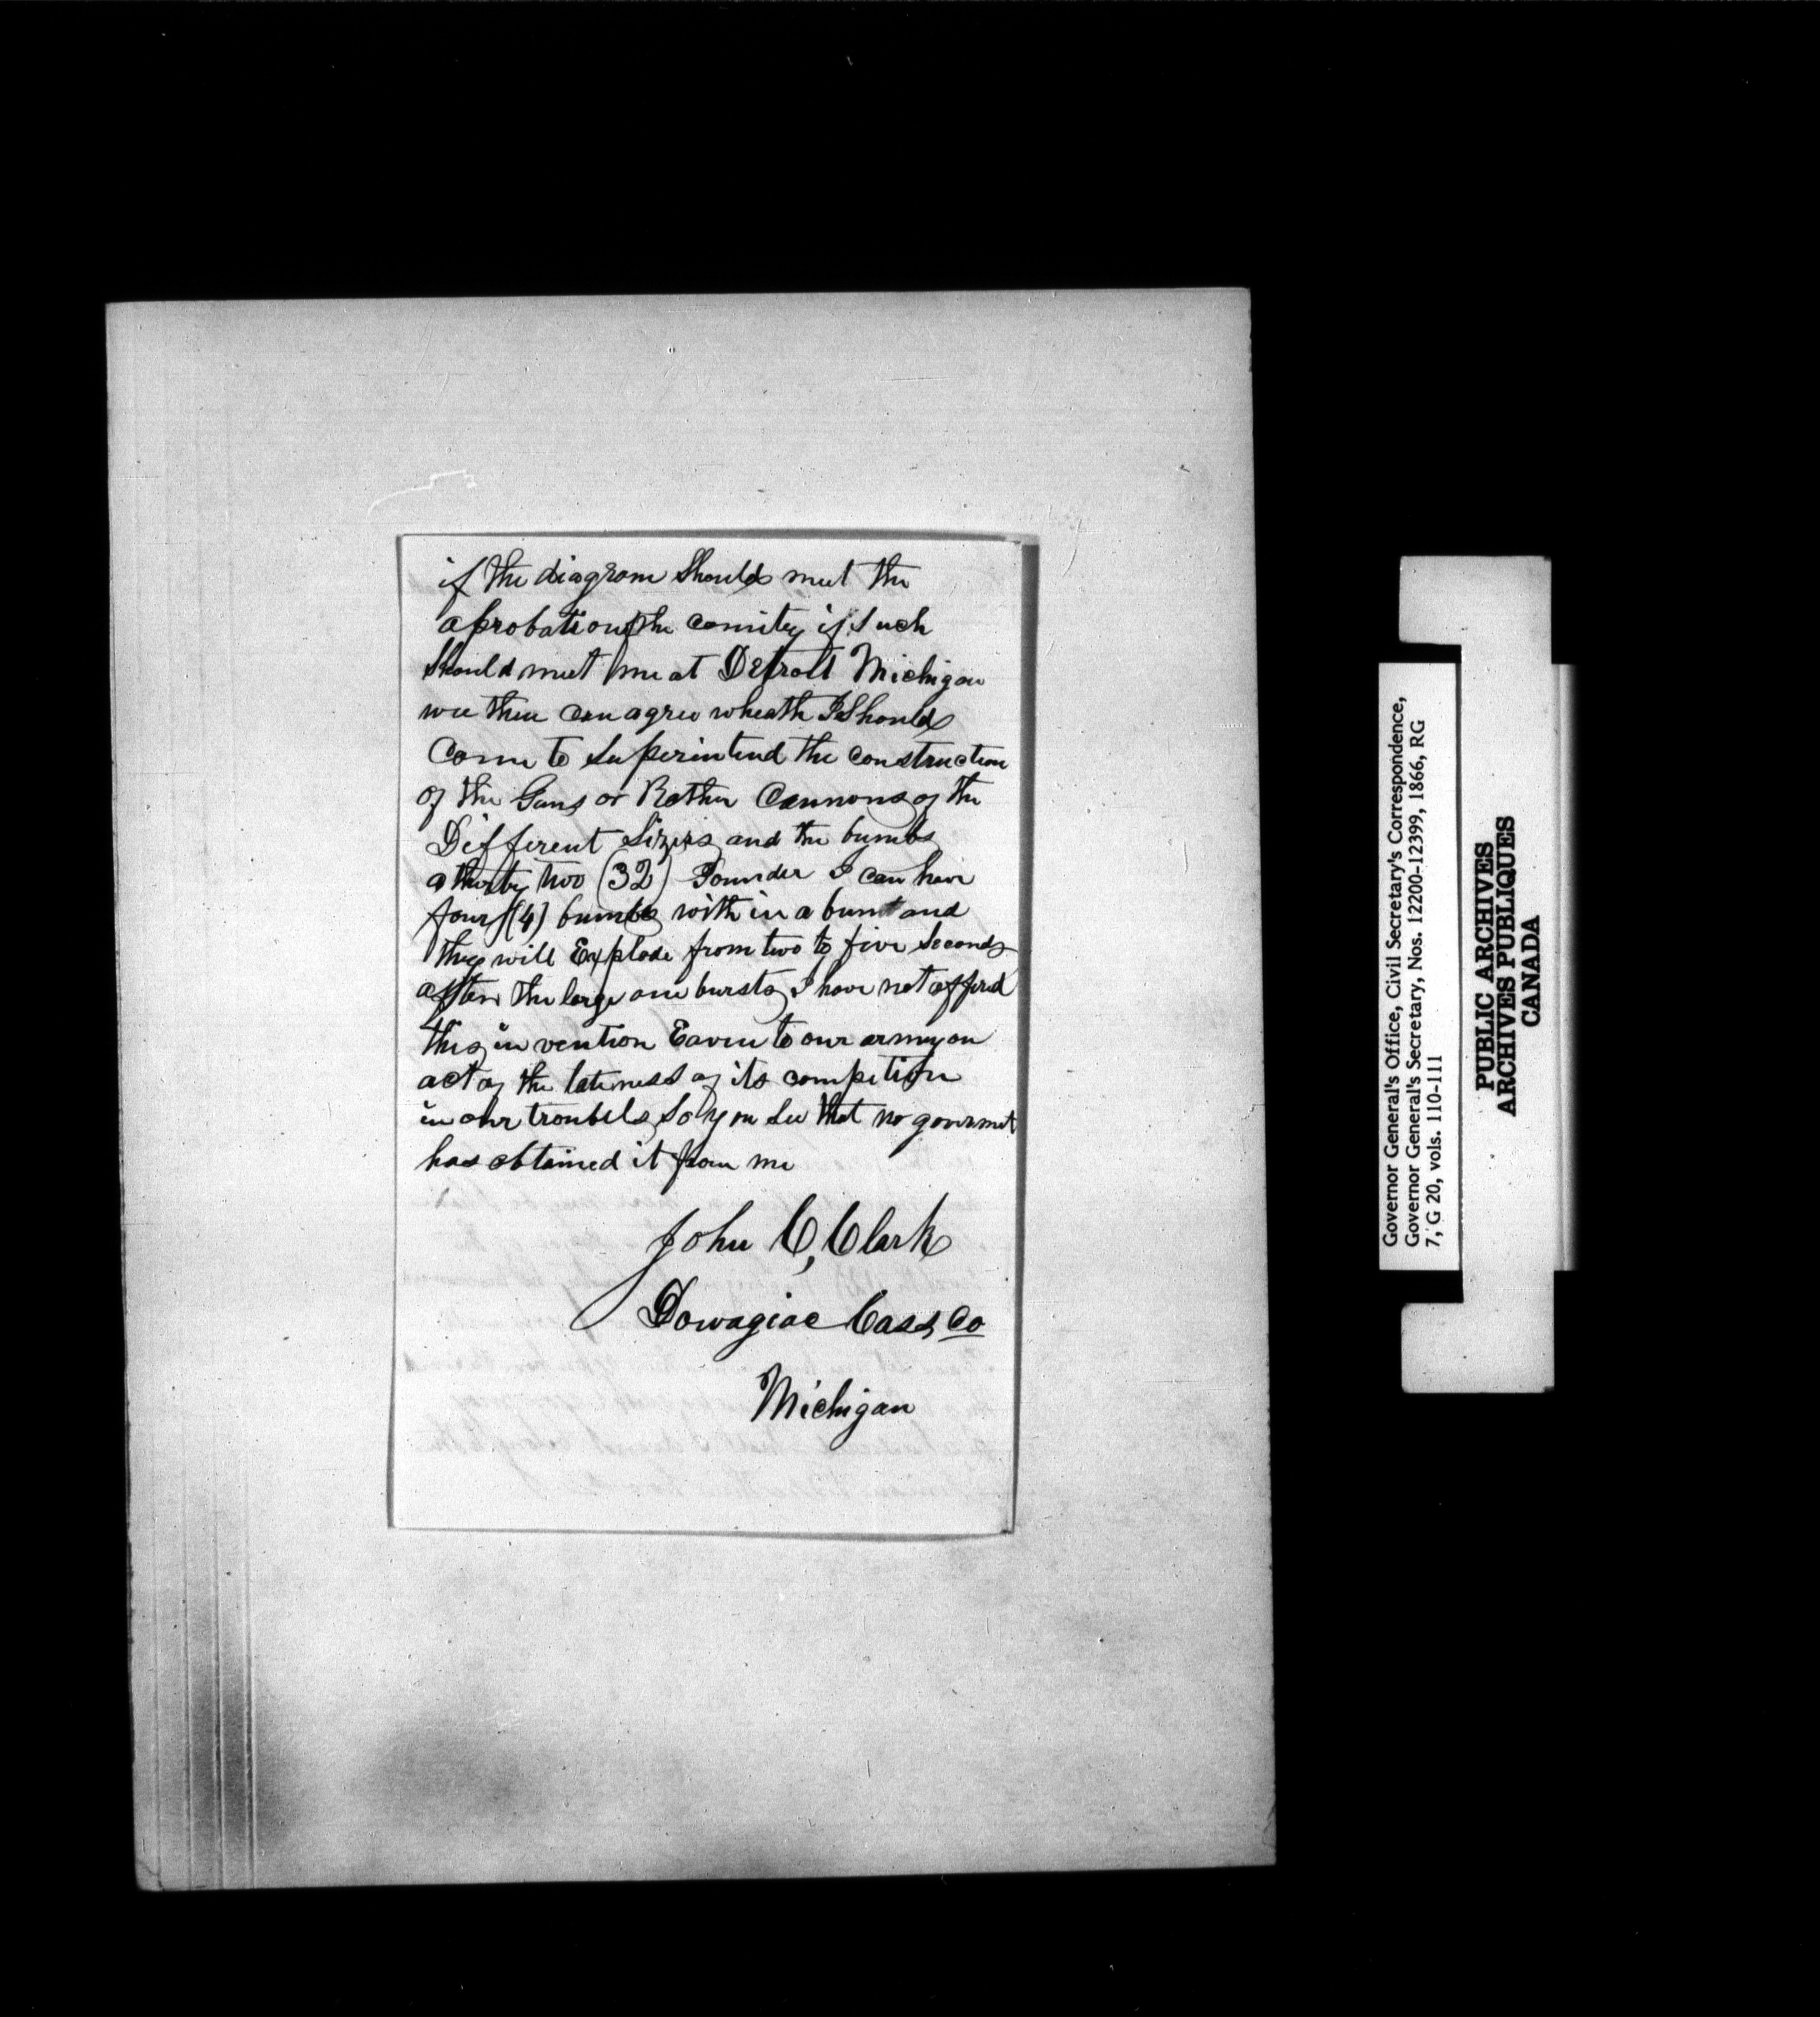 if the diagram Should meet the
aprobation of the comitey if Such
Should meet me at Detroit Michigan
wee then can agree wheath I Should
Come to Superintend the construction
of the Guns or Rather Cannons of the
Different Sizes and the bumbs
a thirty two (32) Pounder I can have
four (4) bumbs with in a bum and
they will Explode from two to five Seconds
after the large one bursts I have not offerd
this in vention Eaven to our army on
act of the lateness of its competion
in our troubels So you See that no goverment
has obtained it from me
John C, Clark
Dowagiac Cass Co
Michigan
Governor General's Office, Civil Secretary's Correspondence,
Governor General's Secretary, Nos. 12200-12399, 1866, RG
7, G 20, vols. 110-111
PUBLIC ARCHIVES
ARCHIVES PUBLIQUES
CANADA